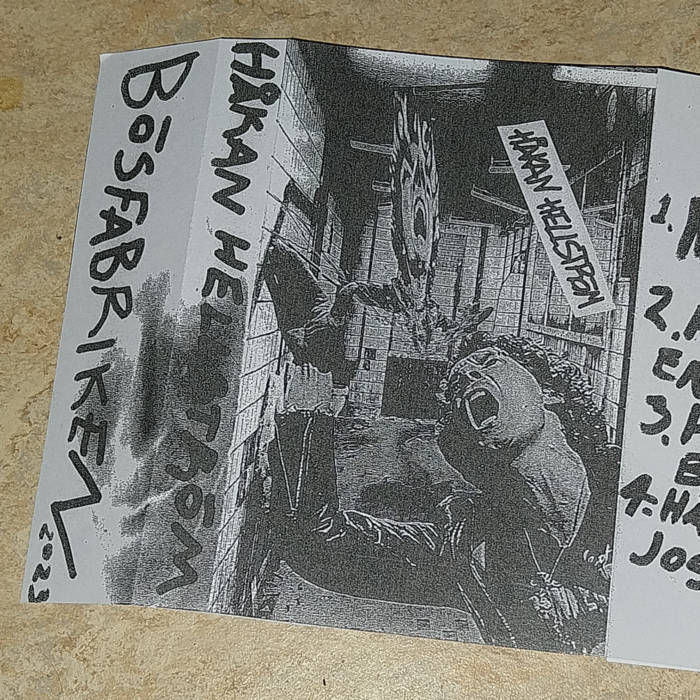 BŌSFABRIKEN
2023
HÅKAN HELLSTRŌM
HÅKAN HELLSTRÖM
1.
2.
EN
3.
4. HA
JOS